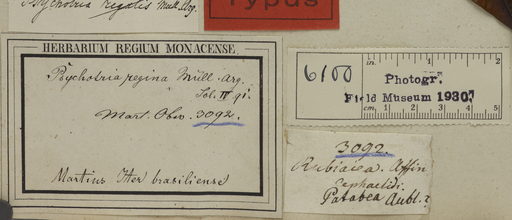 Psychotria regalis Müll. Arg.
Typus
HERBARIUM REGIUM MONACENSE.
Psychotria regina Müll. Arg.
Mart. Obs. 3092.
Martius. Iter brasiliense
6100
in. 1 2
Photogr.
Field Museum 1930.
cm 1 2 3 4 5
3092.
Rubiacea. Affin.
Cephaelidi.
Patabea Aubl.?